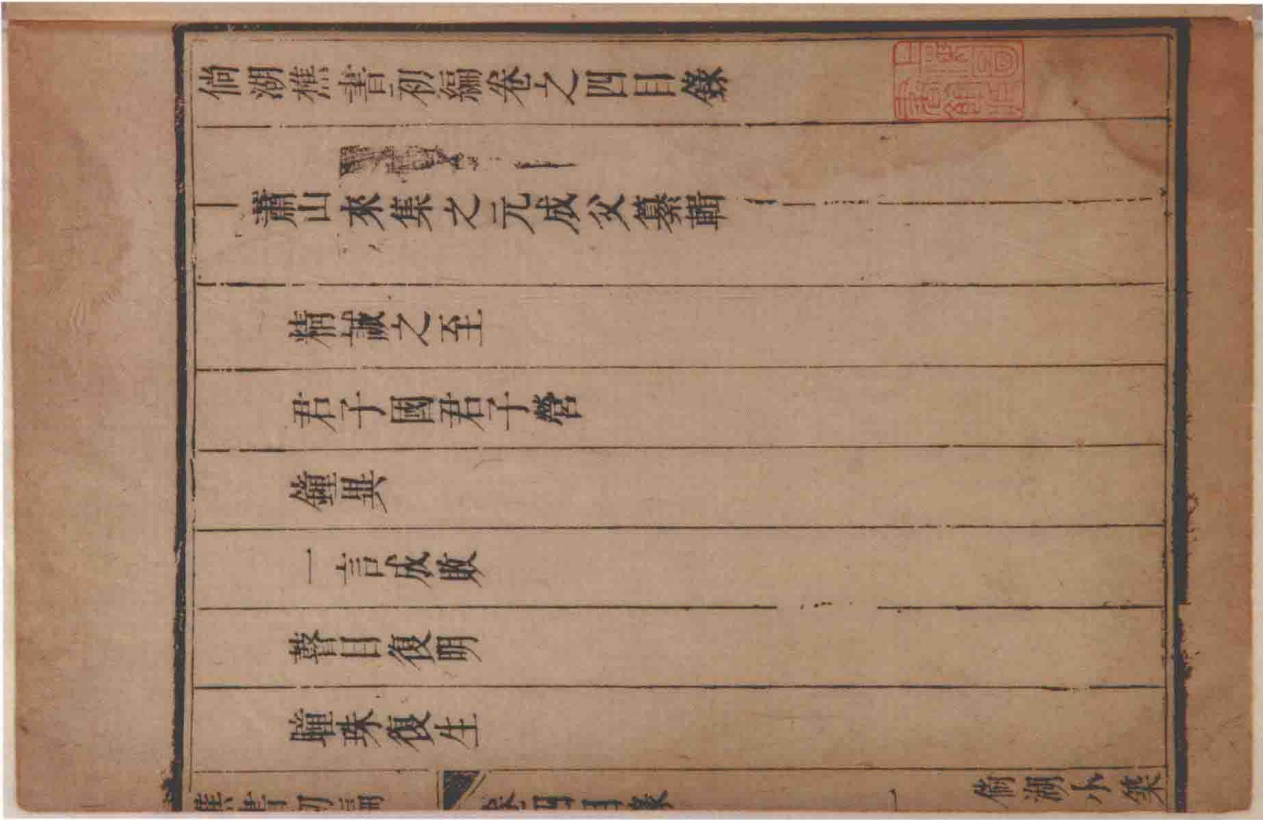 倘湖樵書初編卷之四目錄
蕭山來集之元成父纂輯
精誠之至
君子國君子營
鐘異
一言成敗
瞽目復明
瞳珠復生
樵書初編 卷四目錄 一 倘湖小築